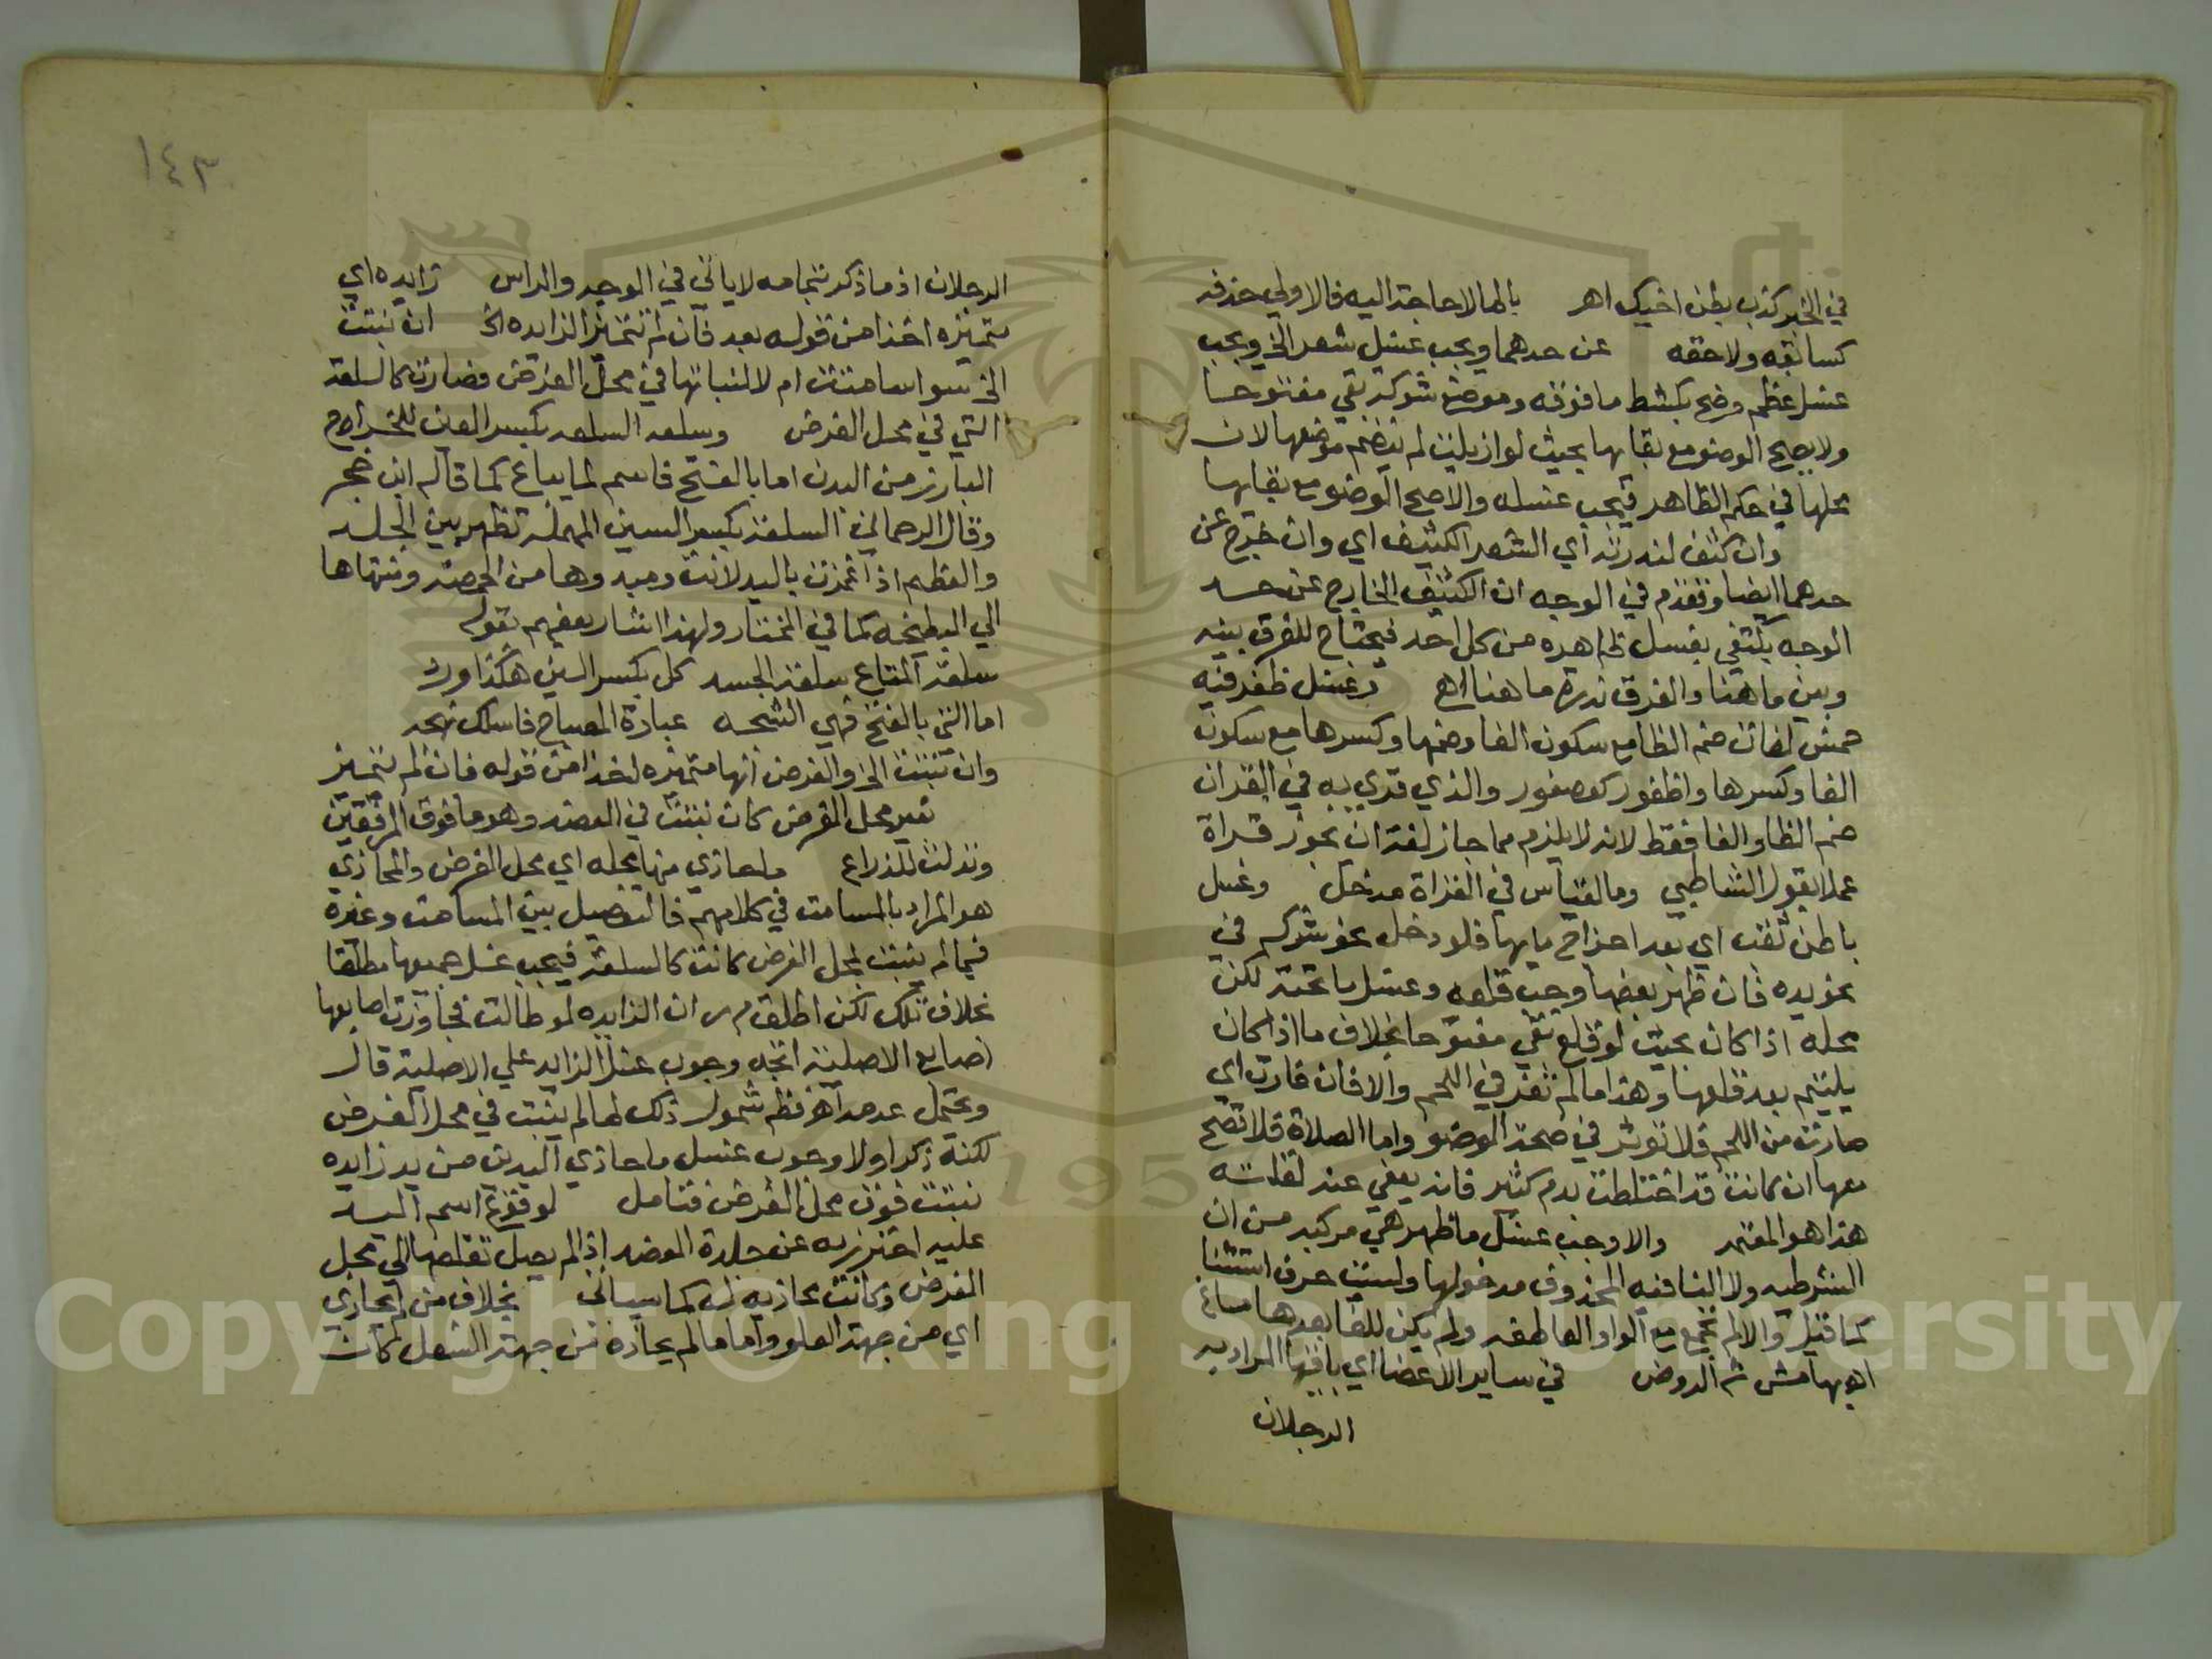 في الخبر كذب بطن اخيك اهر بالما لا حاجة اليه فالاولي حذفه
كسابقه ولاحقه عن حدهما ويجب غسل شعر الخ ويجب
غسل عظم وضح بكشط ما فوقه وموضع شوكة بقي مفتوحا
ولا يصح الوضو مع بقايها بحيث لو ازيلت لم ينضم موضعها لان
محلها في حكم الظاهر فيجب غسله والا صح الوضو مع بقايها
وان كثف لندرته اي الشعر الكثيف اي وان خرج عن
حدهما ايضا وتقدم في الوجه ان الكثيف الخارج عن حد
الوجه يكتفي بغسل ظاهره من كل احد فيحتاج للفرق بينه
وبين ما هنا والفرق ندرة ما هنا اهر وغسل ظفر فيه
خمس لغات ضم الظا مع سكون الفا وضمها وكسرها مع سكون
الفا وكسرها واظفور كعصفور والذي قري به في القران
ضم الظا والفا فقط لانه لا يلزم مما جاز لغة ان يجوز قراة
عملا بقول الشاطبي وما لقياس في القراة مدخل وغسل
باطن ثقب اي بعد اخراج ما بها فلو دخل نحو شوكة في
نحو يده فان ظهر بعضها وجب قلعه وغسل ما تحته لكن
محله اذا كان بحيث لو قلع بقي مفتوحا بخلاف ما اذا كان
يلتيم بعد قلعها وهذا ما لم تغر في اللحم والا فان غارت اي
صارت من اللحم فلا توثر في صحة الوضو واما الصلاة فلا تصح
معها ان كانت قد اختلطت بدم كثير فانه يعفي عند لقلته
هذا هو المعتمد والا وجب غسل ما ظهر هي مركبة من ان
الشرطيه ولا النافيه المحذوف مدخولها وليست حرف استثنا
كما قيل والا لم تجمع مع الواو العاطفه ولم يكن للفا بعدها مساغ
اهر بهامش شر الروض في ساير الاعضا اي باقيها المراد به
الرجلان
١٤٣
الرجلان اذ ما ذكر بتمامه لا ياتي في الوجه والراس زايده اي
متميزه اخذا من قوله بعد فان لم تتميز الزايده الخ ان نبتت
الخ سوا سامتت ام لا لنباتها في محل الفرض فصارت كالسلعة
التي في محل الفرض وسلعه السلعه بكسر العين للخراج
البارز من البدن اما بالفتح فاسم لما يباع كما قاله ابن حجر
وقال الرحماني السلعة بكسر السين المهملة تظهر بين الجلد
والعظم اذا غمزت باليد لانت ومبدوها من الحمصة ومنتهاها
الي البطيخه كما في المختار ولهذا اشار بعضهم بقوله
سلعة المتاع سلعة الجسد كل بكسر السين هكذا ورد
اما التي بالفتح فهي الشجه عبارة المصباح فاسلك نهجه
وان نبتت الخ والفرض انها متميزه اخذا من قوله فان لم تتميز
بغير محل الفرض كان نبتت في العضد وهو ما فوق المرفقين
وتدلت للذراع ما حاذي منها محله اي محل الفرض والمحاذي
هو المراد بالمسامت في كلامهم فالتفصيل بين المسامت وغيره
فيما لم ينبت بمحل الفرض كانت كالسلعة فيجب غسل جميعها مطلقا
بخلاف تلك لكن اطلق م ر ان الزايده لو طالت فجاوزت اصابعها
اصابع الاصلية اتجه وجوب غسل الزايد علي الاصلية قال
ويحتمل عدمه اهر فظ شمول ذلك لما لم ينبت في محل الفرض
لكنه ذكر اولا وجوب غسل ما حاذي اليدين من يد زايده
نبتت فوق محل الفرض فتامل لوقوع اسم اليد
عليه احترز به عن جلدة العضد اذا لم يصل تقلصها الي محل
الفرض وكانت محاذيه له كما سياتي بخلاف من لم يحاذي
اي من جهة العلو واما ما لم يحاذه من جهة السفل كان